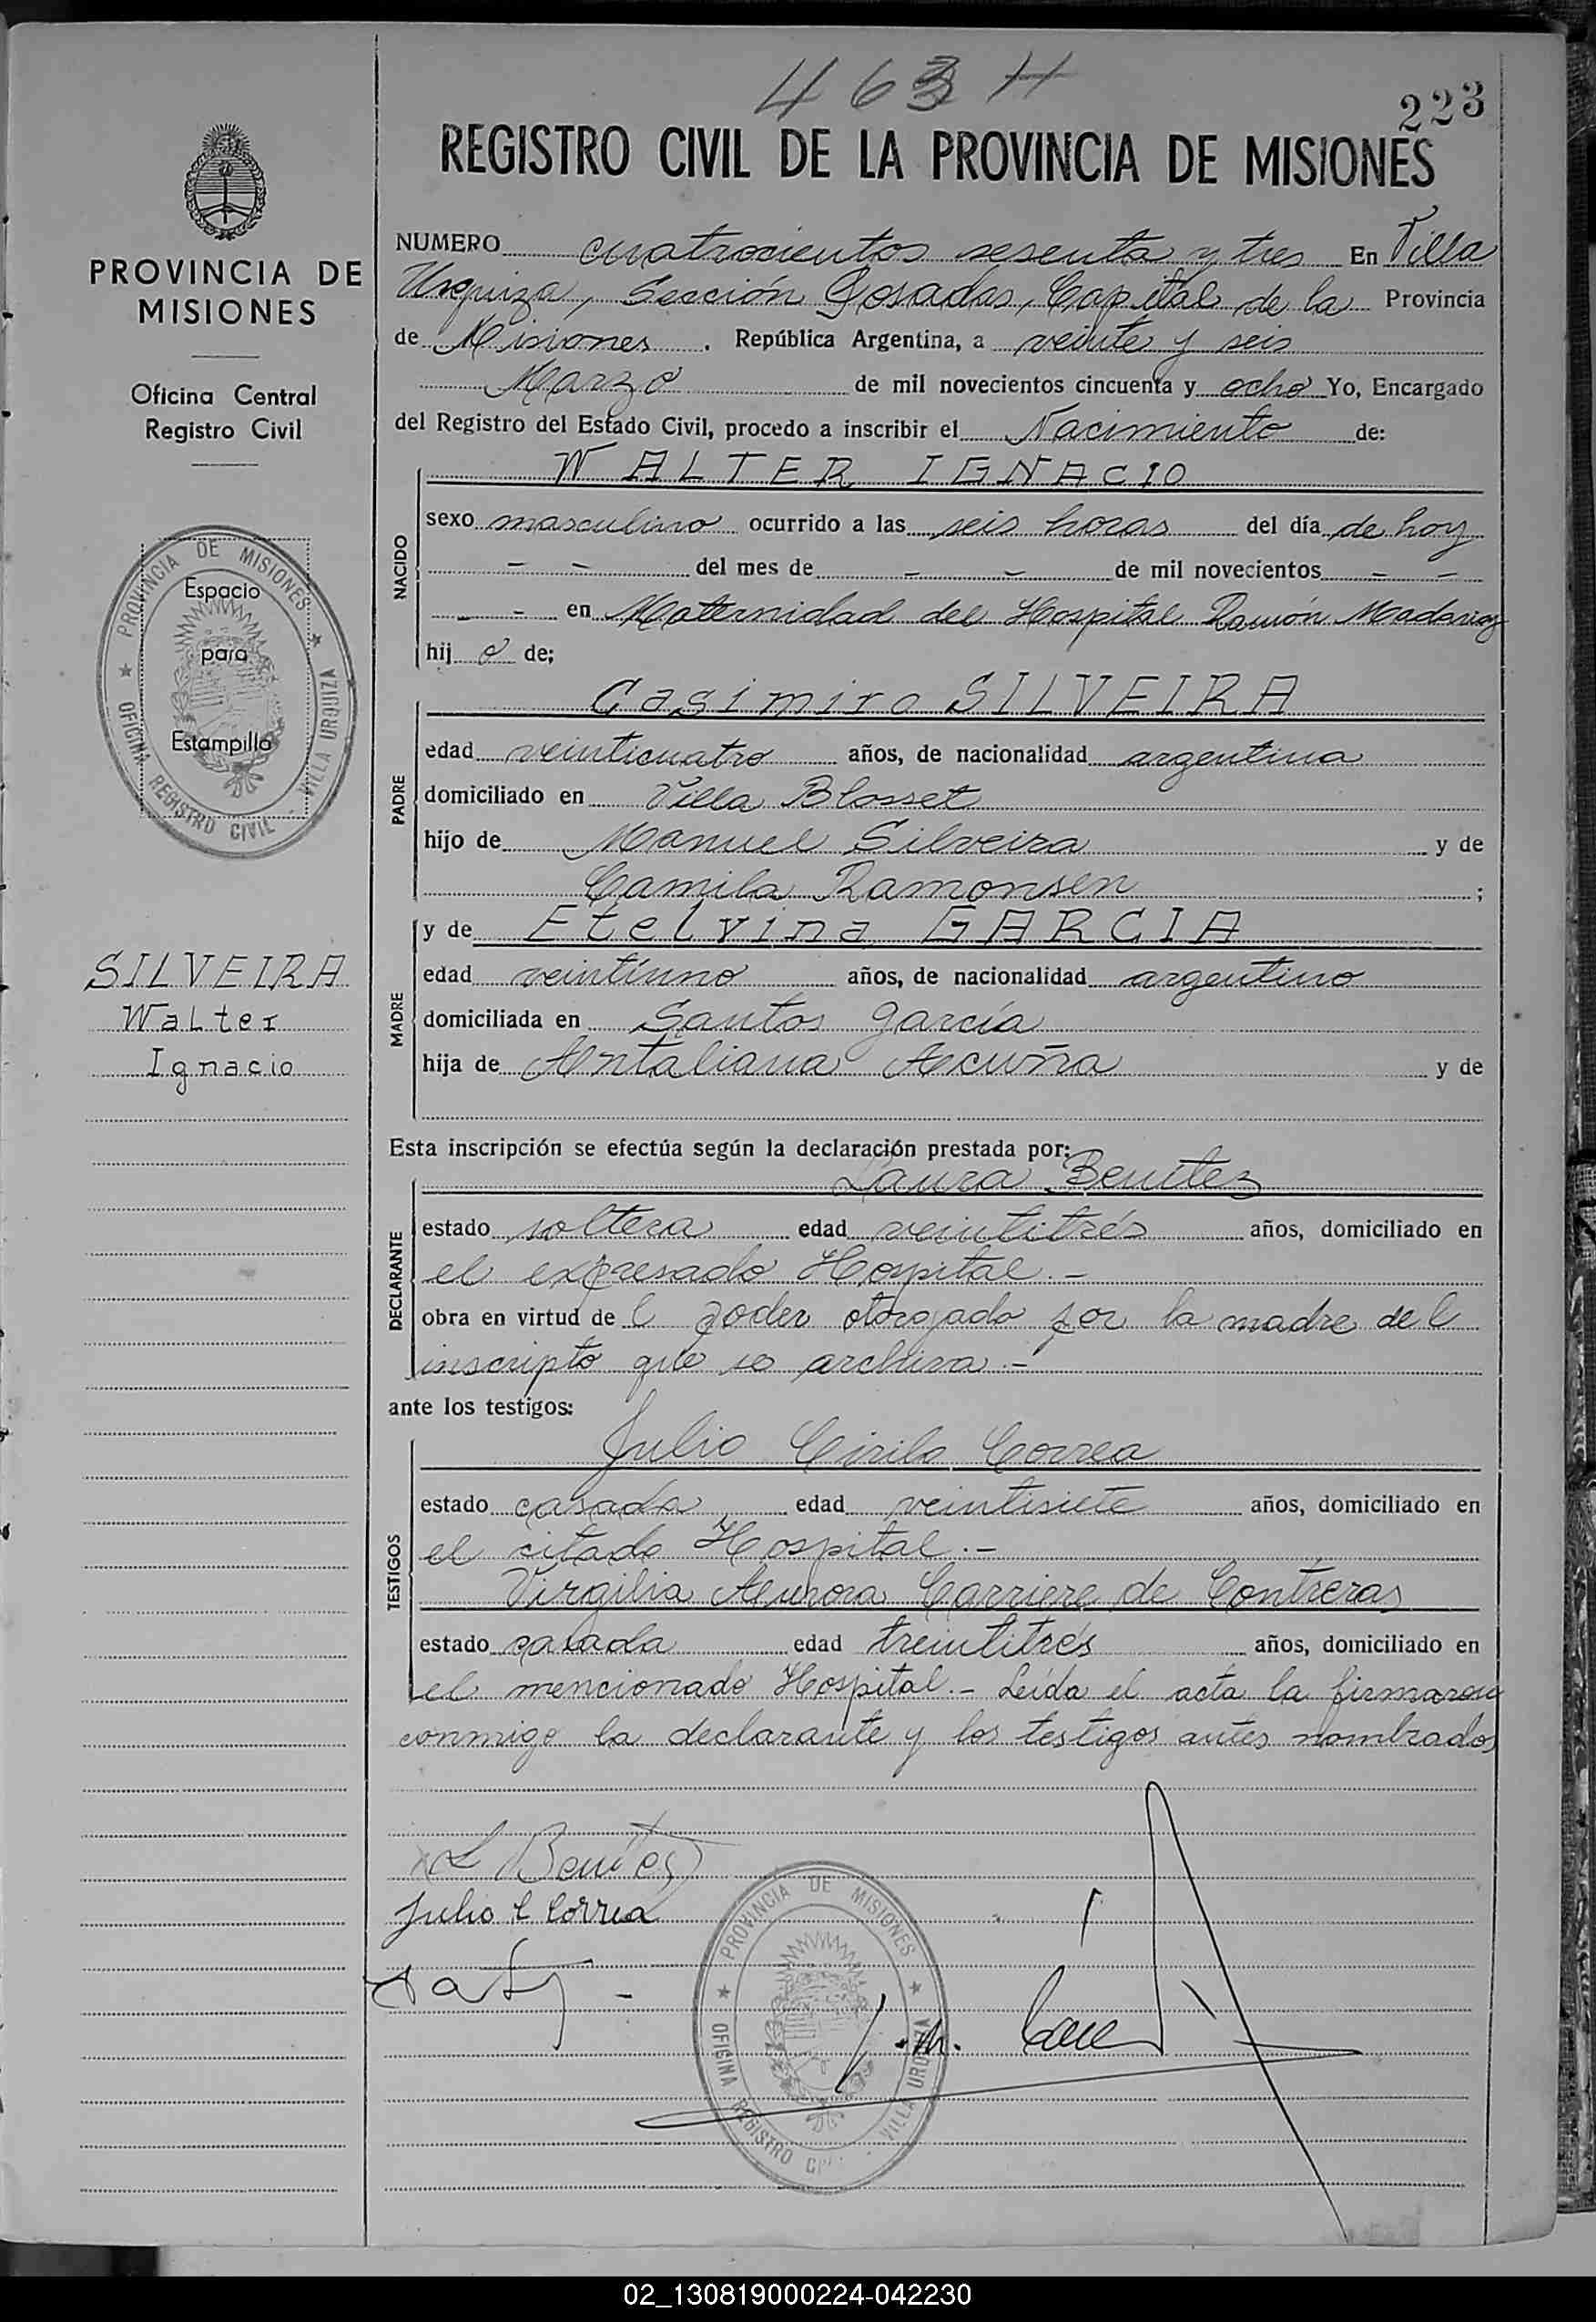 463 H
223
REGISTRO CIVIL DE LA PROVINCIA DE MISIONES
PROVINCIA DE
MISIONES
Oficina Central
Registro Civil
PROVINCIA DE MISIONES
OFICINA REGISTRO CIVIL - VILLA URQUIZA
Espacio
para
Estampilla
SILVEIRA
Walter
Ignacio
NUMERO cuatrocientos sesenta y tres En Villa
Urquiza, Sección Posadas, Capital de la Provincia
de Misiones. República Argentina, a veinte y seis
Marzo de mil novecientos cincuenta y ocho Yo, Encargado
del Registro del Estado Civil, procedo a inscribir el Nacimiento de:
WALTER IGNACIO
NACIDO
sexo masculino ocurrido a las seis horas del día de hoy
- - del mes de - - de mil novecientos - -
- en Maternidad del Hospital Ramón Madariag
hij o de;
Casimiro SILVEIRA
PADRE
edad veinticuatro años, de nacionalidad argentina
domiciliado en Villa Blosset
hijo de Manuel Silveira y de
Camila Ramonsen ;
y de Etelvina GARCIA
MADRE
edad veintiuno años, de nacionalidad argentino
domiciliada en Santos García
hija de Antaliana Acuña y de
Esta inscripción se efectúa según la declaración prestada por:
Laura Benitez
DECLARANTE
estado soltera edad veintitrés años, domiciliado en
el expresado Hospital.-
obra en virtud de l poder otorgado por la madre del
inscripto que se archiva.-
ante los testigos:
Julio Cirilo Correa
TESTIGOS
estado casado edad veintisiete años, domiciliado en
el citado Hospital.-
Virgilia Aurora Carriere de Contreras
estado casada edad treintitrés años, domiciliado en
el mencionado Hospital.- Leída el acta la firmaron
conmigo la declarante y los testigos antes nombrados
L Benitez
Julio C Correa
PROVINCIA DE MISIONES
OFICINA REGISTRO CIVIL - VILLA URQUIZA
02_130819000224-042230